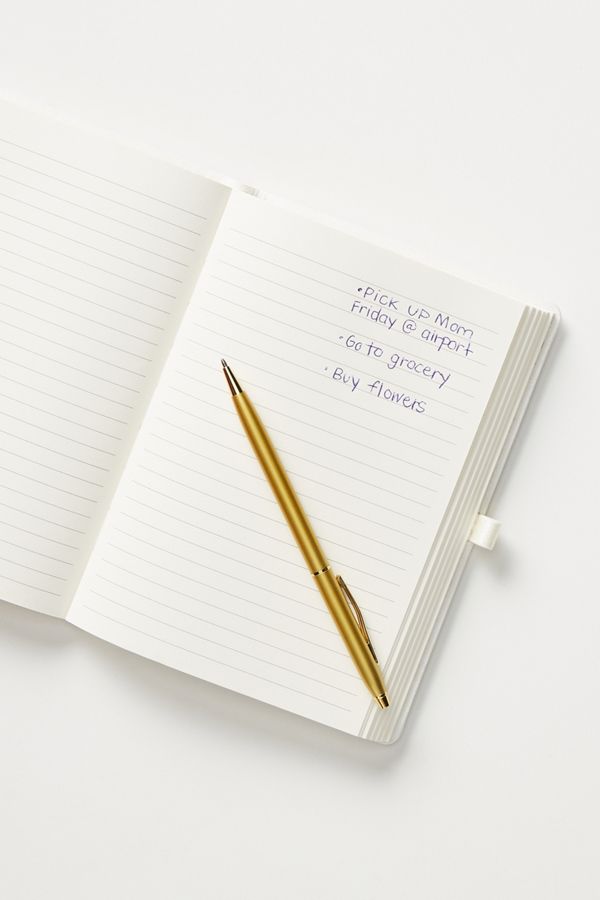 •Pick up Mom
Friday @ airport
•Go to grocery
•Buy flowers